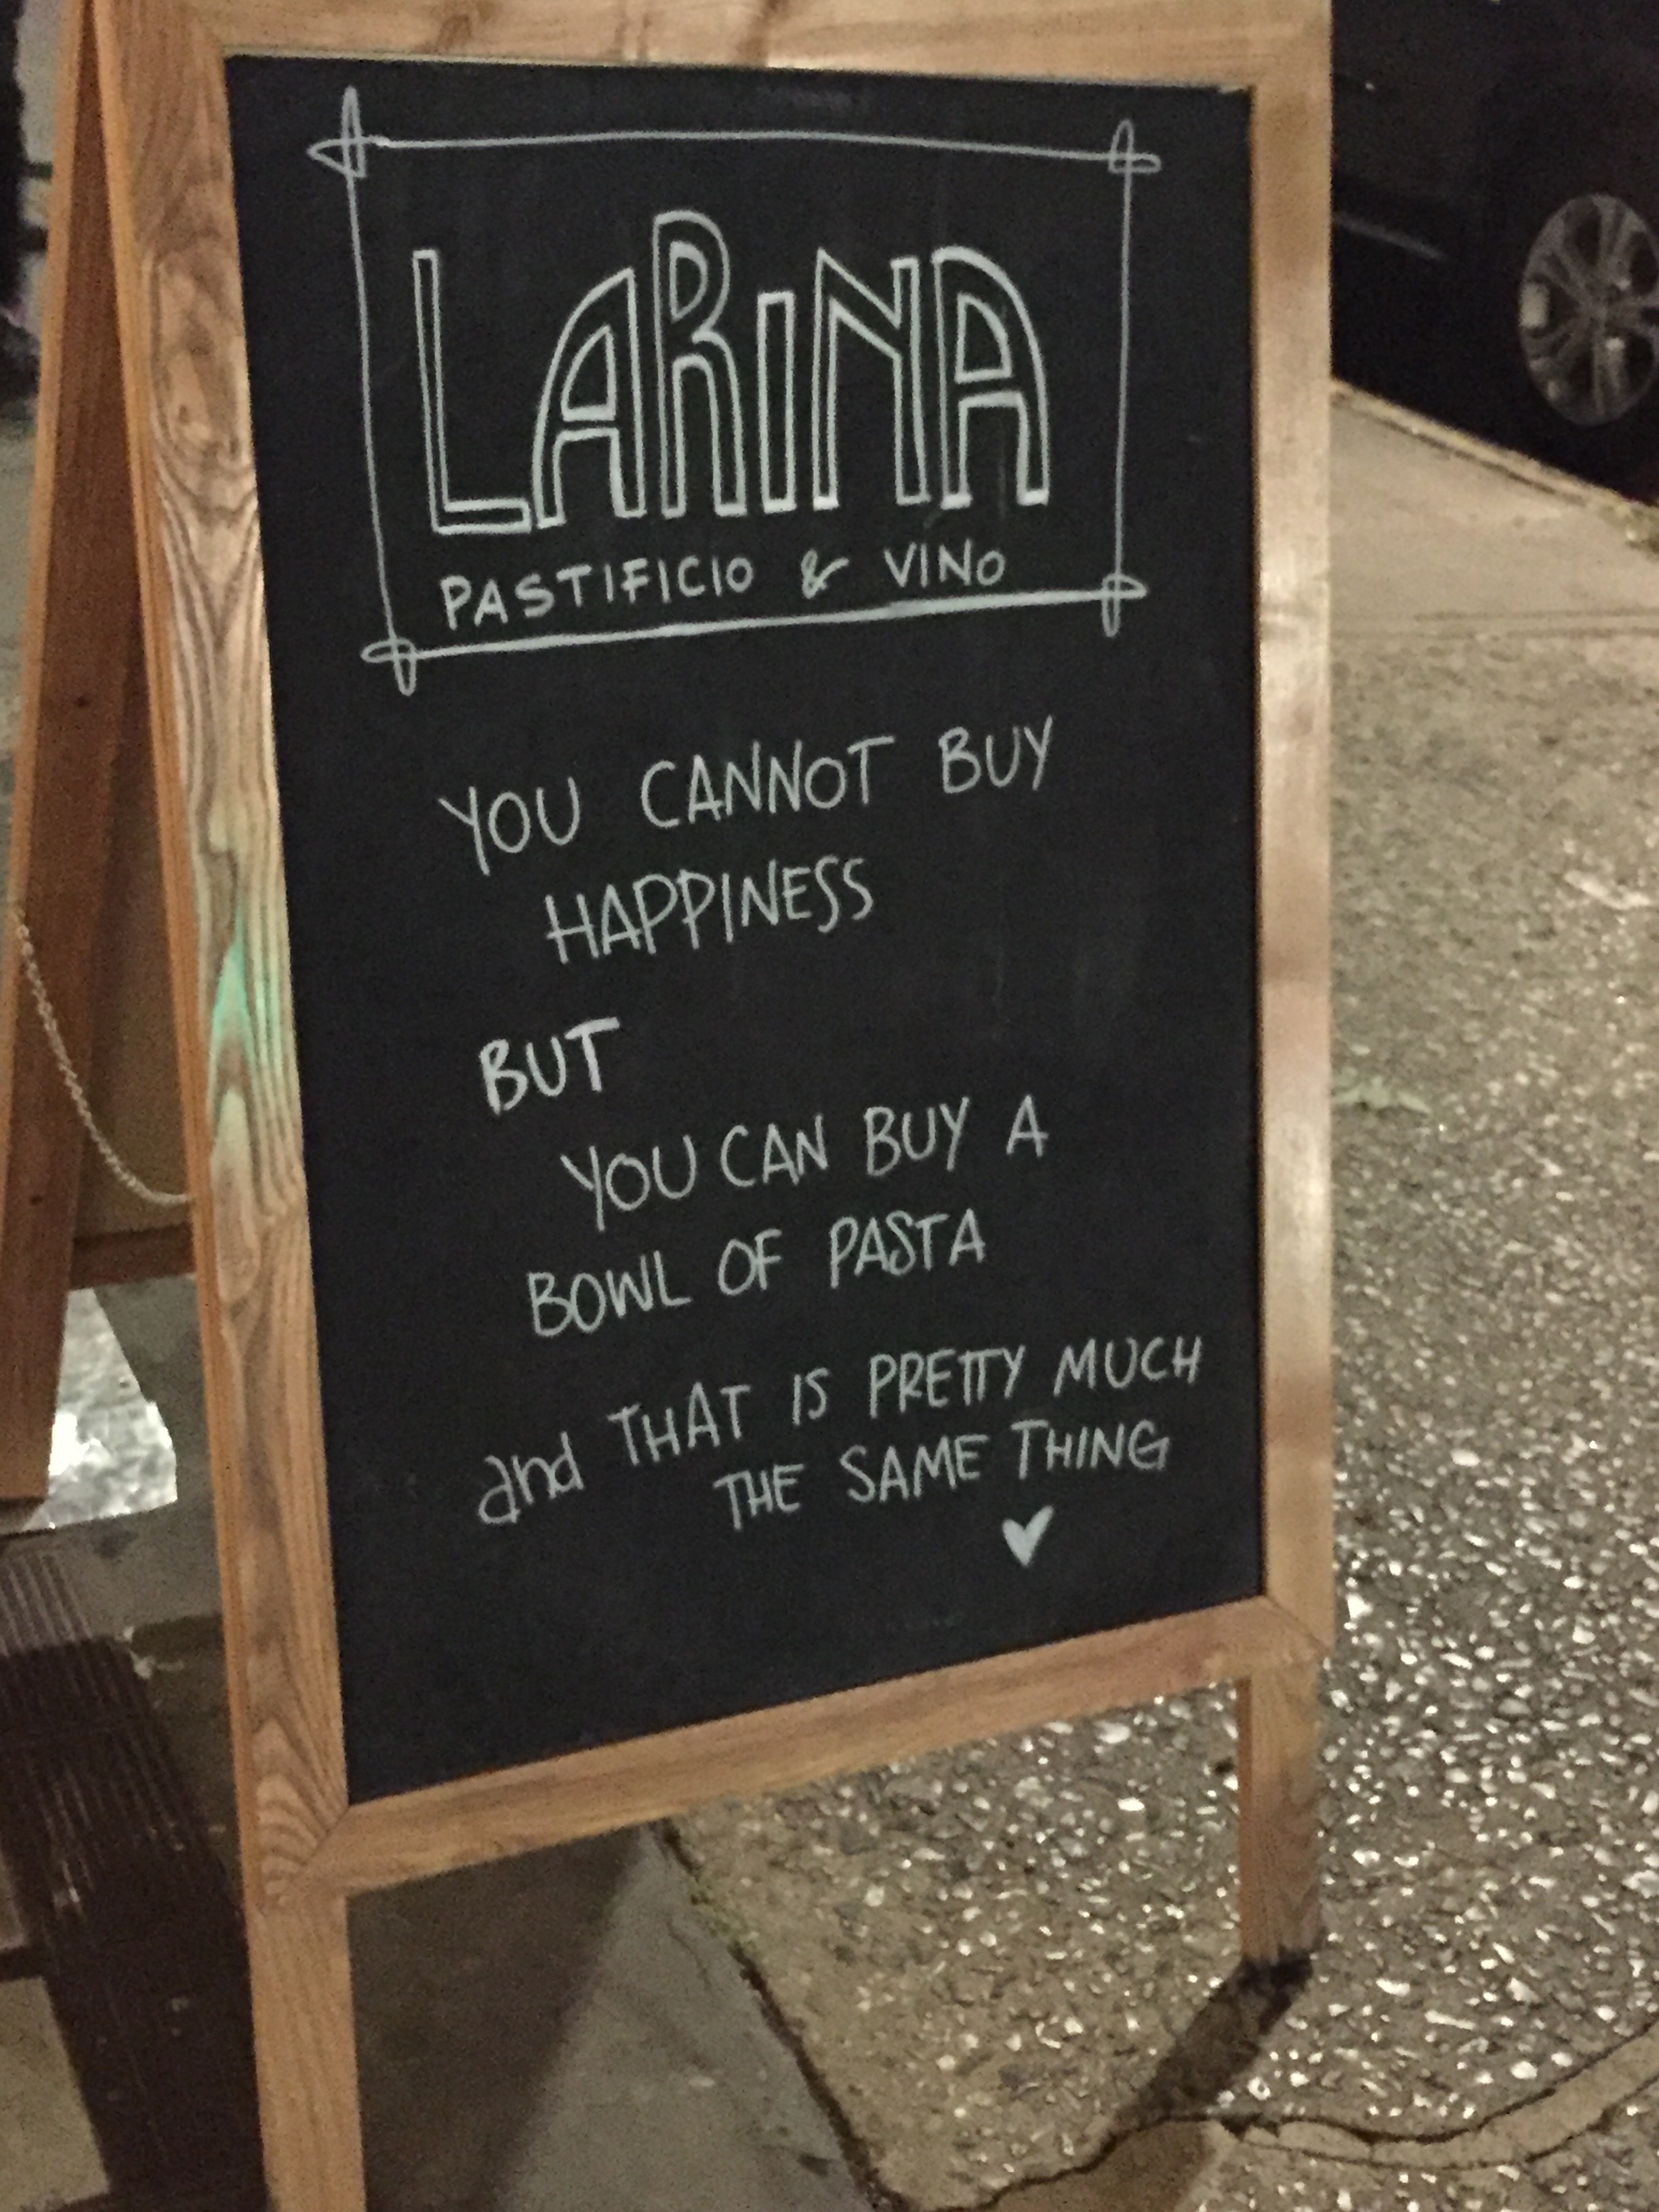 LARINA
PASTIFICIO & VINO
YOU CANNOT BUY
HAPPINESS
BUT
YOU CAN BUY A
BOWL OF PASTA
and THAT IS PRETTY MUCH
THE SAME THING